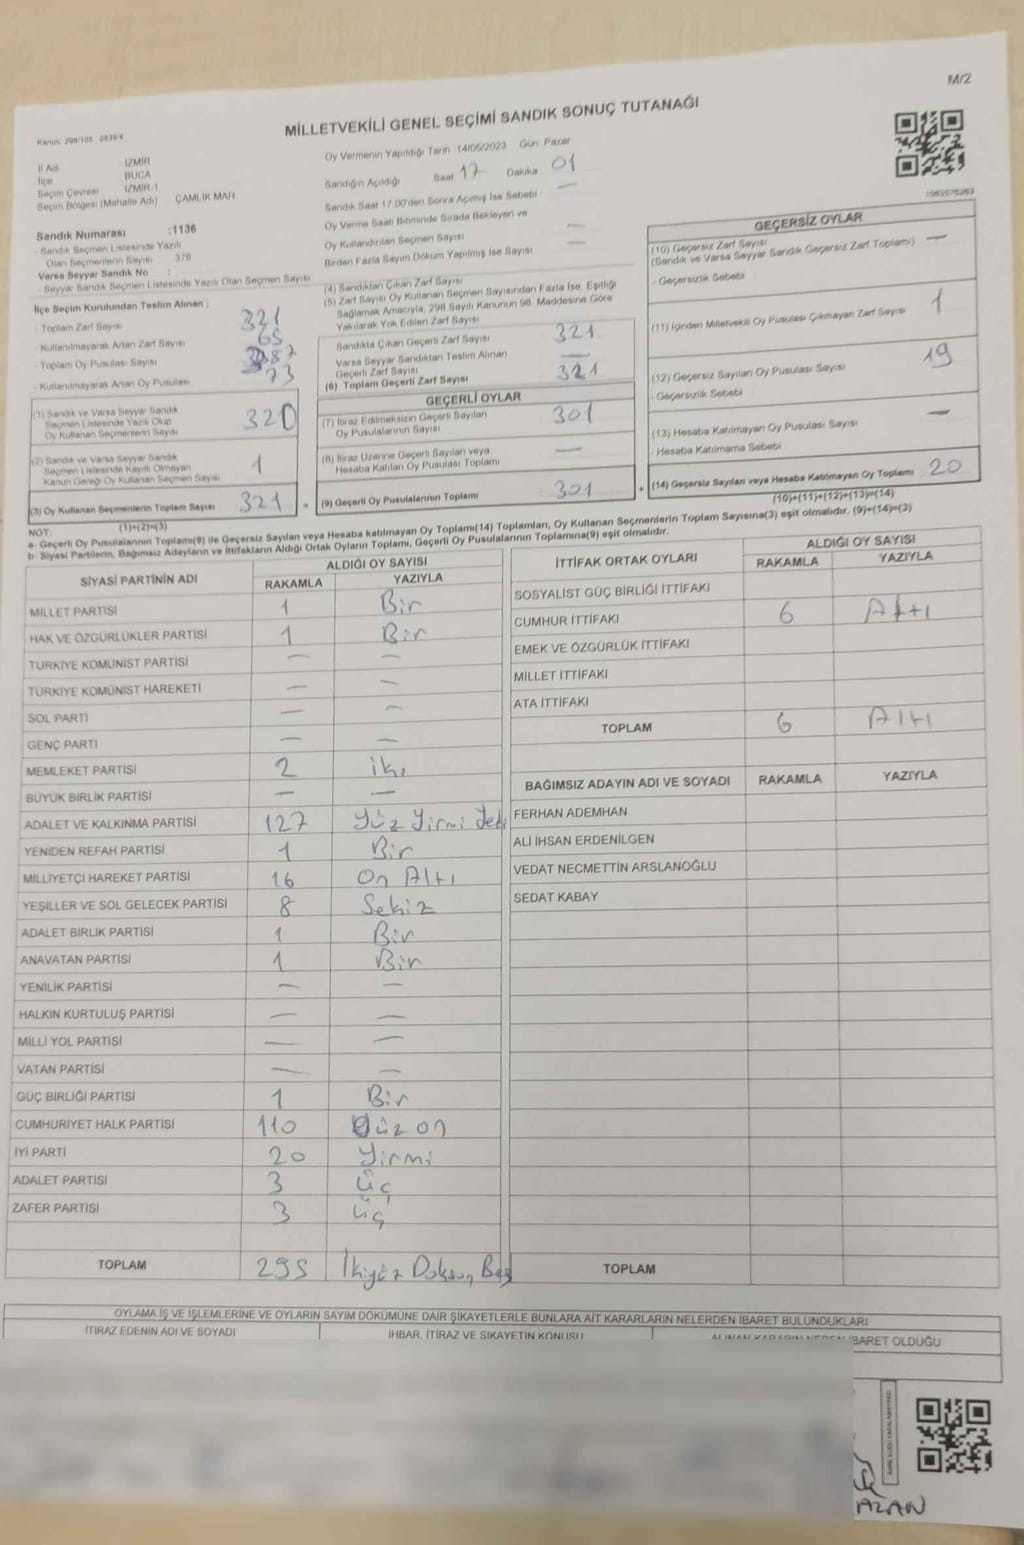 M/2
Kanun: 298/105 , 2839/4
MİLLETVEKİLİ GENEL SEÇİMİ SANDIK SONUÇ TUTANAĞI
İl Adı İZMİR
İlçe BUCA
Seçim Çevresi İZMİR-1
Seçim Bölgesi (Mahalle Adı) ÇAMLIK MAH
Sandık Numarası :1136
- Sandık Seçmen Listesinde Yazılı
Olan Seçmenlerin Sayısı 370
Varsa Seyyar Sandık No :
- Seyyar Sandık Seçmen Listesinde Yazılı Olan Seçmen Sayısı
İlçe Seçim Kurulundan Teslim Alınan :
- Toplam Zarf Sayısı 321
- Kullanılmayarak Artan Zarf Sayısı 65
- Toplam Oy Pusulası Sayısı
- Kullanılmayarak Artan Oy Pusulası 73
(1) Sandık ve Varsa Seyyar Sandık
Seçmen Listesinde Yazılı Olup
Oy Kullanan Seçmenlerin Sayısı 320
(2) Sandık ve Varsa Seyyar Sandık
Seçmen Listesinde Kayıtlı Olmayan
Kanun Gereği Oy Kullanan Seçmen Sayısı 1
(3) Oy Kullanan Seçmenlerin Toplam Sayısı 321
(1)+(2)=(3)
Oy Vermenin Yapıldığı Tarih 14/05/2023 Gün Pazar
Sandığın Açıldığı Saat 17 Dakika 01
Sandık Saat 17:00'den Sonra Açımış İse Sebebi —
Oy Verme Saati Bitiminde Sırada Bekleyen ve
Oy Kullandırılan Seçmen Sayısı —
Birden Fazla Sayım Döküm Yapılmış İse Sayısı —
(4) Sandıktan Çıkan Zarf Sayısı
(5) Zarf Sayısı Oy Kullanan Seçmen Sayısından Fazla İse, Eşitliği
Sağlamak Amacıyla, 298 Sayılı Kanunun 98. Maddesine Göre
Yakılarak Yok Edilen Zarf Sayısı
Sandıkta Çıkan Geçerli Zarf Sayısı 321
Varsa Seyyar Sandıktan Teslim Alınan
Geçerli Zarf Sayısı —
(6) Toplam Geçerli Zarf Sayısı 321
GEÇERLİ OYLAR
(7) İtiraz Edilmeksizin Geçerli Sayılan
Oy Pusulalarının Sayısı 301
(8) İtiraz Üzerine Geçerli Sayılan veya
Hesaba Katılan Oy Pusulası Toplamı —
= (9) Geçerli Oy Pusulalarının Toplamı 301
1062576263
GEÇERSİZ OYLAR
(10) Geçersiz Zarf Sayısı
(Sandık ve Varsa Seyyar Sandık Geçersiz Zarf Toplamı) —
- Geçersizlik Sebebi
(11) İçinden Milletvekili Oy Pusulası Çıkmayan Zarf Sayısı 1
(12) Geçersiz Sayılan Oy Pusulası Sayısı 19
- Geçersizlik Sebebi
(13) Hesaba Katılmayan Oy Pusulası Sayısı —
- Hesaba Katılmama Sebebi
+ (14) Geçersiz Sayılan veya Hesaba Katılmayan Oy Toplamı 20
(10)+(11)+(12)+(13)=(14)
NOT:
a- Geçerli Oy Pusulalarının Toplamı(9) ile Geçersiz Sayılan veya Hesaba katılmayan Oy Toplamı(14) Toplamları, Oy Kullanan Seçmenlerin Toplam Sayısına(3) eşit olmalıdır. (9)+(14)=(3)
b- Siyasi Partilerin, Bağımsız Adayların ve İttifakların Aldığı Ortak Oyların Toplamı, Geçerli Oy Pusulalarının Toplamına(9) eşit olmalıdır.
SİYASİ PARTİNİN ADI ALDIĞI OY SAYISI
RAKAMLA YAZIYLA
MİLLET PARTİSİ 1 Bir
HAK VE ÖZGÜRLÜKLER PARTİSİ 1 Bir
TÜRKİYE KOMÜNİST PARTİSİ — —
TÜRKİYE KOMÜNİST HAREKETİ — —
SOL PARTİ — —
GENÇ PARTİ — —
MEMLEKET PARTİSİ 2 İki
BÜYÜK BİRLİK PARTİSİ — —
ADALET VE KALKINMA PARTİSİ 127 Yüz Yirmi Yedi
YENİDEN REFAH PARTİSİ 1 Bir
MİLLİYETÇİ HAREKET PARTİSİ 16 On Altı
YEŞİLLER VE SOL GELECEK PARTİSİ 8 Sekiz
ADALET BİRLİK PARTİSİ 1 Bir
ANAVATAN PARTİSİ 1 Bir
YENİLİK PARTİSİ — —
HALKIN KURTULUŞ PARTİSİ — —
MİLLİ YOL PARTİSİ — —
VATAN PARTİSİ — —
GÜÇ BİRLİĞİ PARTİSİ 1 Bir
CUMHURİYET HALK PARTİSİ 110 Yüz on
İYİ PARTİ 20 Yirmi
ADALET PARTİSİ 3 Üç
ZAFER PARTİSİ 3 Üç
TOPLAM 295 İkiyüz Doksan Beş
İTTİFAK ORTAK OYLARI ALDIĞI OY SAYISI
RAKAMLA YAZIYLA
SOSYALİST GÜÇ BİRLİĞİ İTTİFAKI
CUMHUR İTTİFAKI 6 Altı
EMEK VE ÖZGÜRLÜK İTTİFAKI
MİLLET İTTİFAKI
ATA İTTİFAKI
TOPLAM 6 Altı
BAĞIMSIZ ADAYIN ADI VE SOYADI RAKAMLA YAZIYLA
FERHAN ADEMHAN
ALİ İHSAN ERDENİLGEN
VEDAT NECMETTİN ARSLANOĞLU
SEDAT KABAY
TOPLAM
OYLAMA İŞ VE İŞLEMLERİNE VE OYLARIN SAYIM DÖKÜMÜNE DAİR ŞİKAYETLERLE BUNLARA AİT KARARLARIN NELERDEN İBARET BULUNDUKLARI
İTİRAZ EDENİN ADI VE SOYADI İHBAR, İTİRAZ VE ŞİKAYETİN KONUSU ALINAN KARARIN NEDEN İBARET OLDUĞU